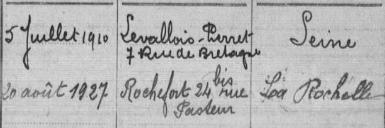 5 Juillet 1910 Levallois-Perret Seine
7 Rue de Bretagne
20 août 1927 Rochefort 24 bis rue La Rochelle
Pasteur